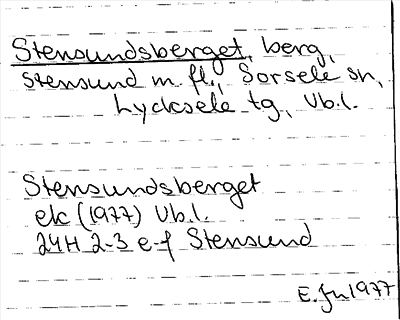 Stensundsberget, berg,
Stensund m. fl., Sorsele sn,
Lycksele tg, Vb.l.
Stensundsberget
ek (1977) Vb.l.
24H 2-3 e-f Stensund
E. Jn 1977